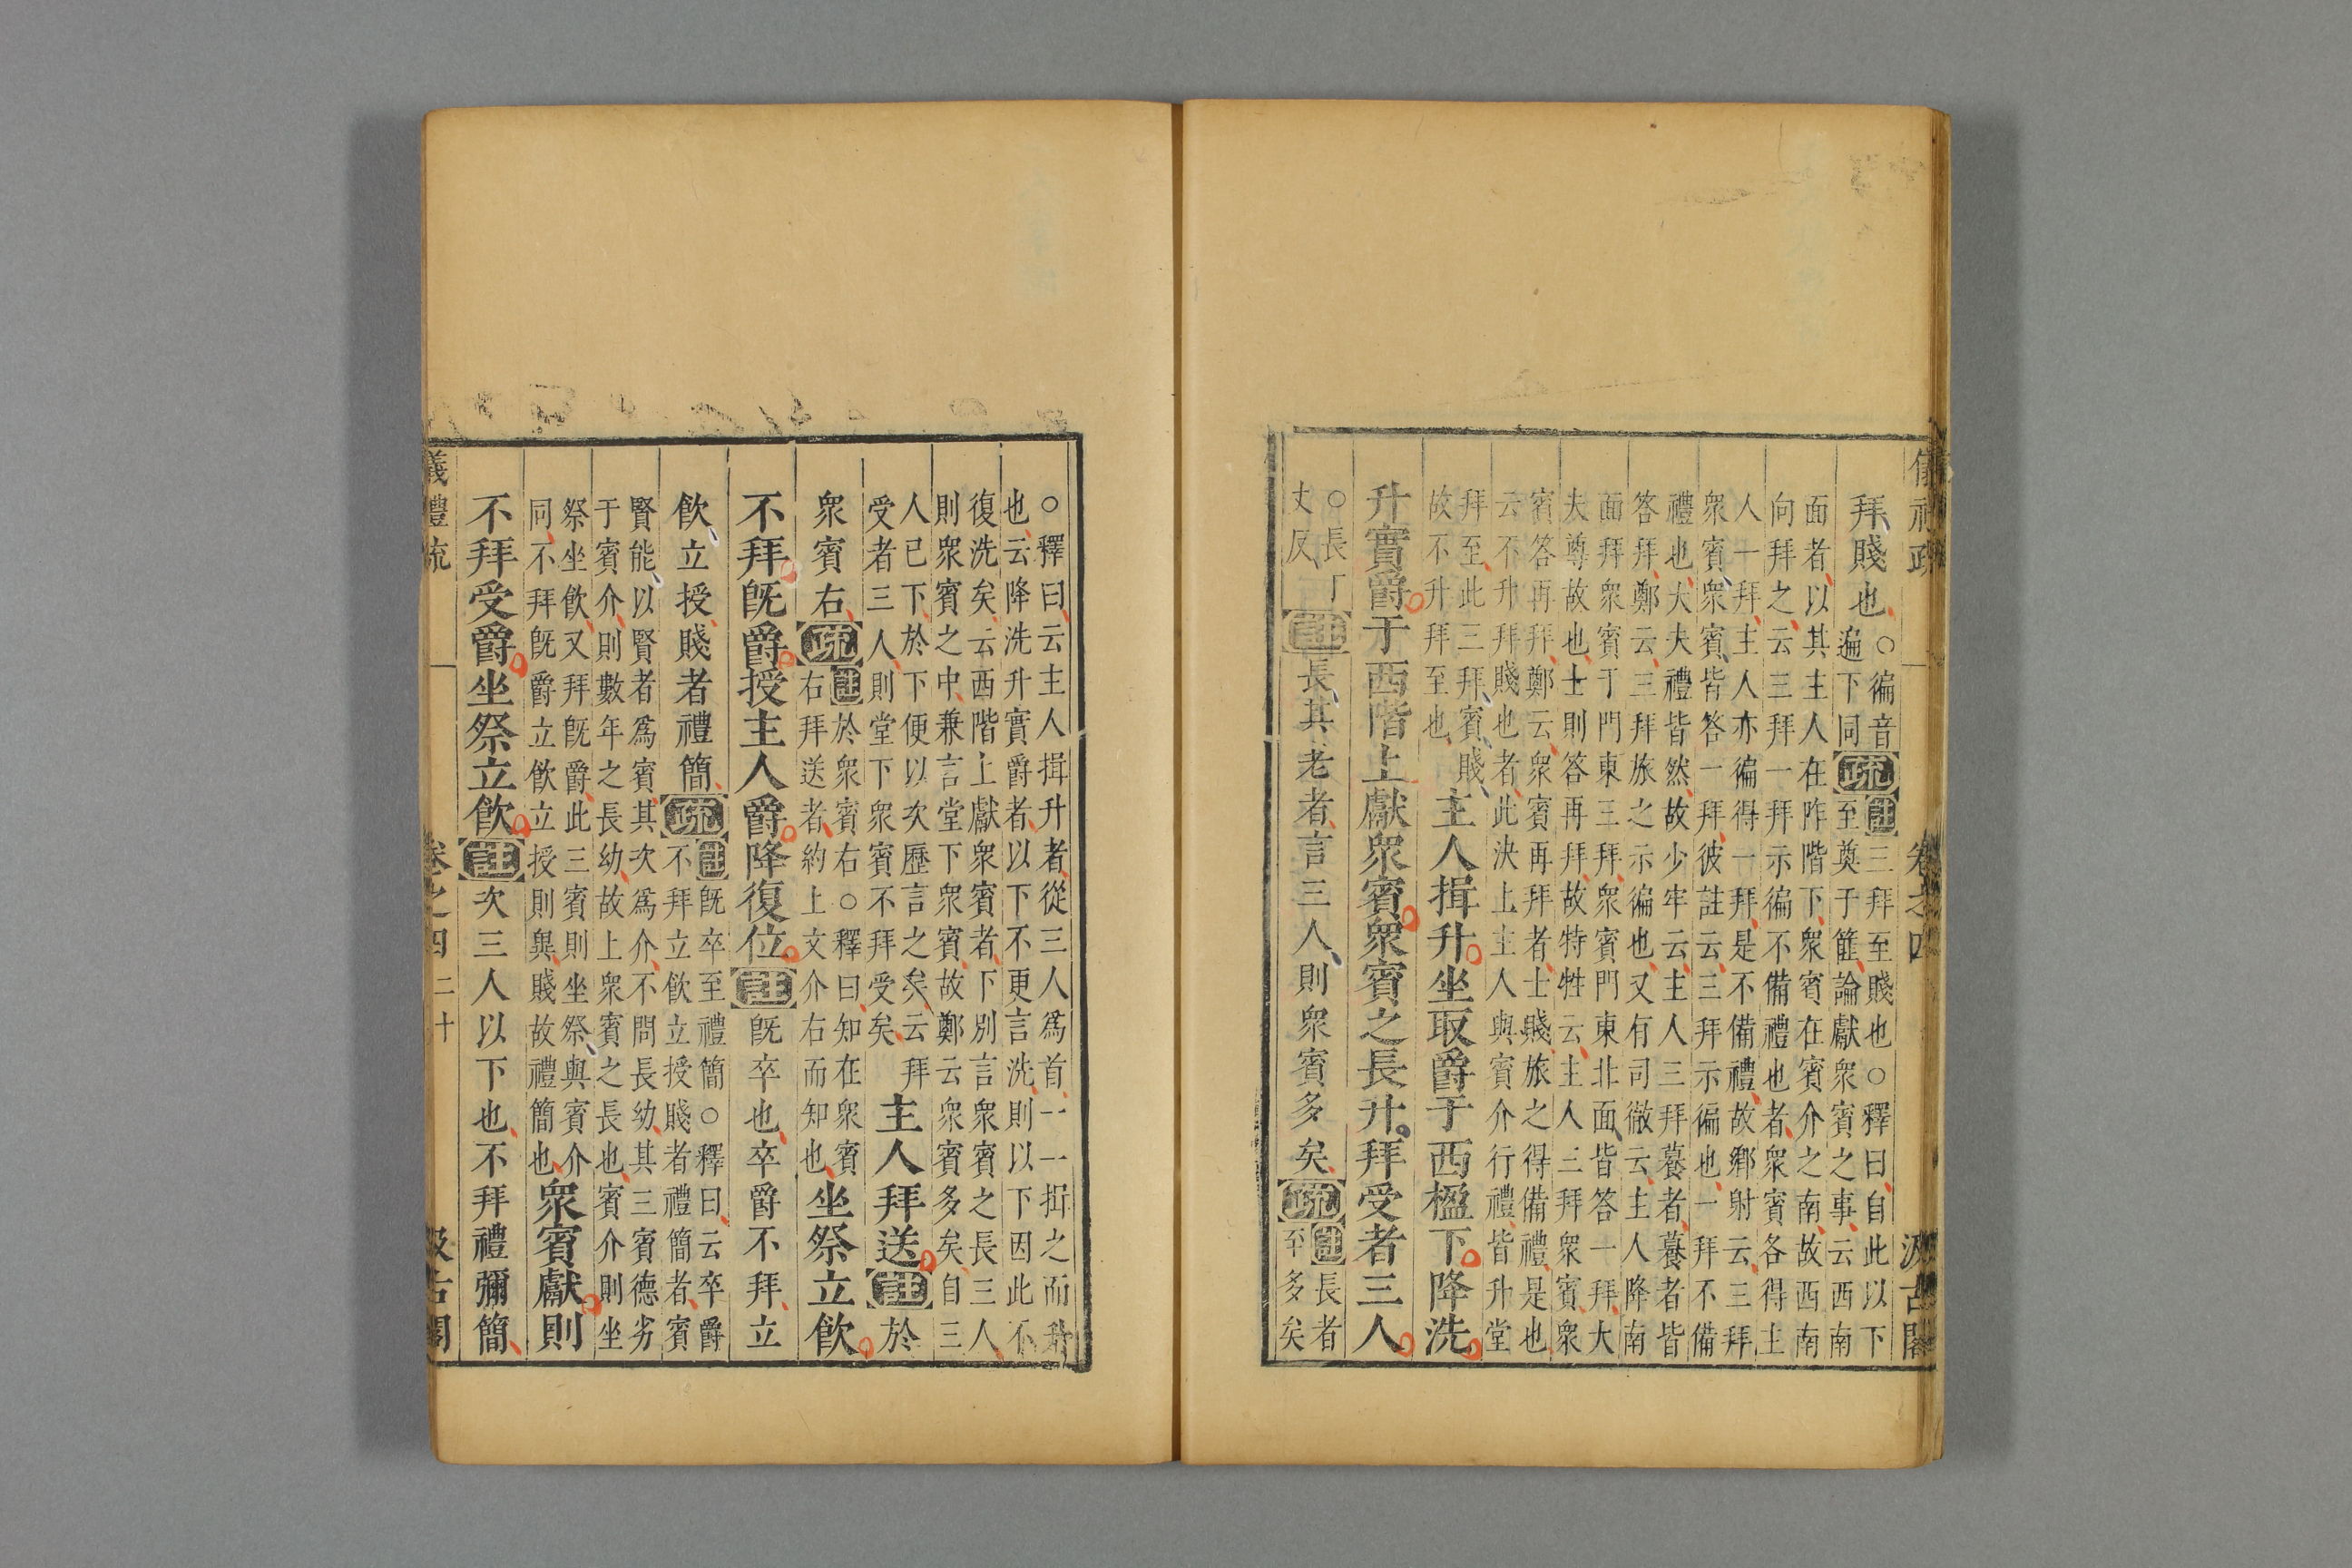 儀禮疏 卷之四 汲古閣
拜賤也
○徧音
遍下同
疏
註三拜至賤也○釋曰自此以下
至奠于篚論獻衆賓之事云西南
面者以其主人在阼階下衆賓在賓介之南故西南
向拜之云三拜一拜示徧不備禮也者衆賓各得主
人一拜主人亦徧得一拜是不備禮故鄉射云三拜
衆賓衆賓皆答一拜彼註云三拜示徧也一拜不備
禮也大夫禮皆然故少牢云主人三拜養者養者皆
答拜鄭云三拜旅之示徧也又有司徹云主人降南
面拜衆賓于門東三拜衆賓門東北面皆答一拜大
夫尊故也士則答再拜故特牲云主人三拜衆賓衆
賓答再拜鄭云衆賓再拜者士賤旅之得備禮是也
云不升拜賤也者此決上主人與賓介行禮皆升堂
拜至此三拜賓賤
故不升拜至也
主人揖升坐取爵于西楹下降洗
升實爵于西階上獻衆賓衆賓之長升拜受者三人
○長丁
丈反
註長其老者言三人則衆賓多矣疏
註長者
至多矣
○釋曰云主人揖升者從三人爲首一一揖之而升
也云降洗升實爵者以下不更言洗則以下因此不
復洗矣云西階上獻衆賓者下別言衆賓之長三人
則衆賓之中兼言堂下衆賓故鄭云衆賓多矣自三
人已下於下便以次歷言之矣云拜
受者三人則堂下衆賓不拜受矣
主人拜送註於
衆賓右疏
註於衆賓右○釋曰知在衆賓
右拜送者約上文介右而知也
坐祭立飲
不拜旣爵授主人爵降復位註旣卒也卒爵不拜立
飲立授賤者禮簡疏
註旣卒至禮簡○釋曰云卒爵
不拜立飲立授賤者禮簡者賓
賢能以賢者爲賓其次爲介不問長幼其三賓德劣
于賓介則數年之長幼故上衆賓之長也賓介則坐
祭坐飲又拜旣爵此三賓則坐祭與賓介
同不拜旣爵立飲立授則與賤故禮簡也
衆賓獻則
不拜受爵坐祭立飲註次三人以下也不拜禮彌簡
儀禮疏 卷之四 二十 汲古閣